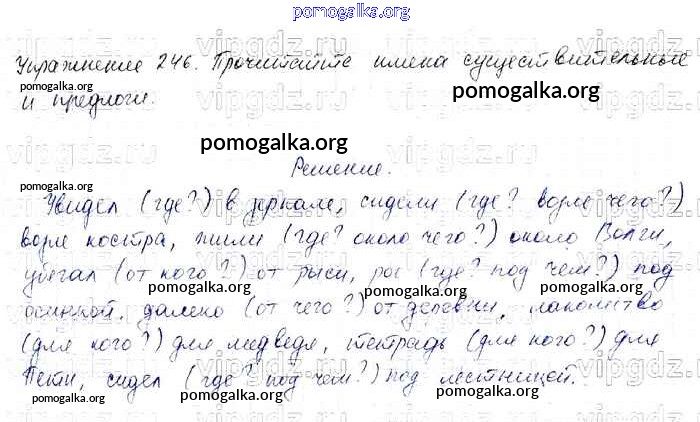 pomogalka.org
Упражнение 246. Прочитайте имена существительные
и предлоги.
pomogalka.org
pomogalka.org
Решение.
pomogalka.org
pomogalka.org
Увидел (где?) в зеркале, сидели (где? возле чего?)
возле костра, жили (где? около чего?) около Волги,
убегал (от кого?) от рыси, рос (где? под чем?) под
осинкой, далеко (от чего?) от деревни, лакомство
(для кого?) для медведя, тетрадь (для кого?) для
Пети, сидел (где? под чем?) под лестницей.
pomogalka.org
pomogalka.org
pomogalka.org
pomogalka.org
pomogalka.org
pomogalka.org